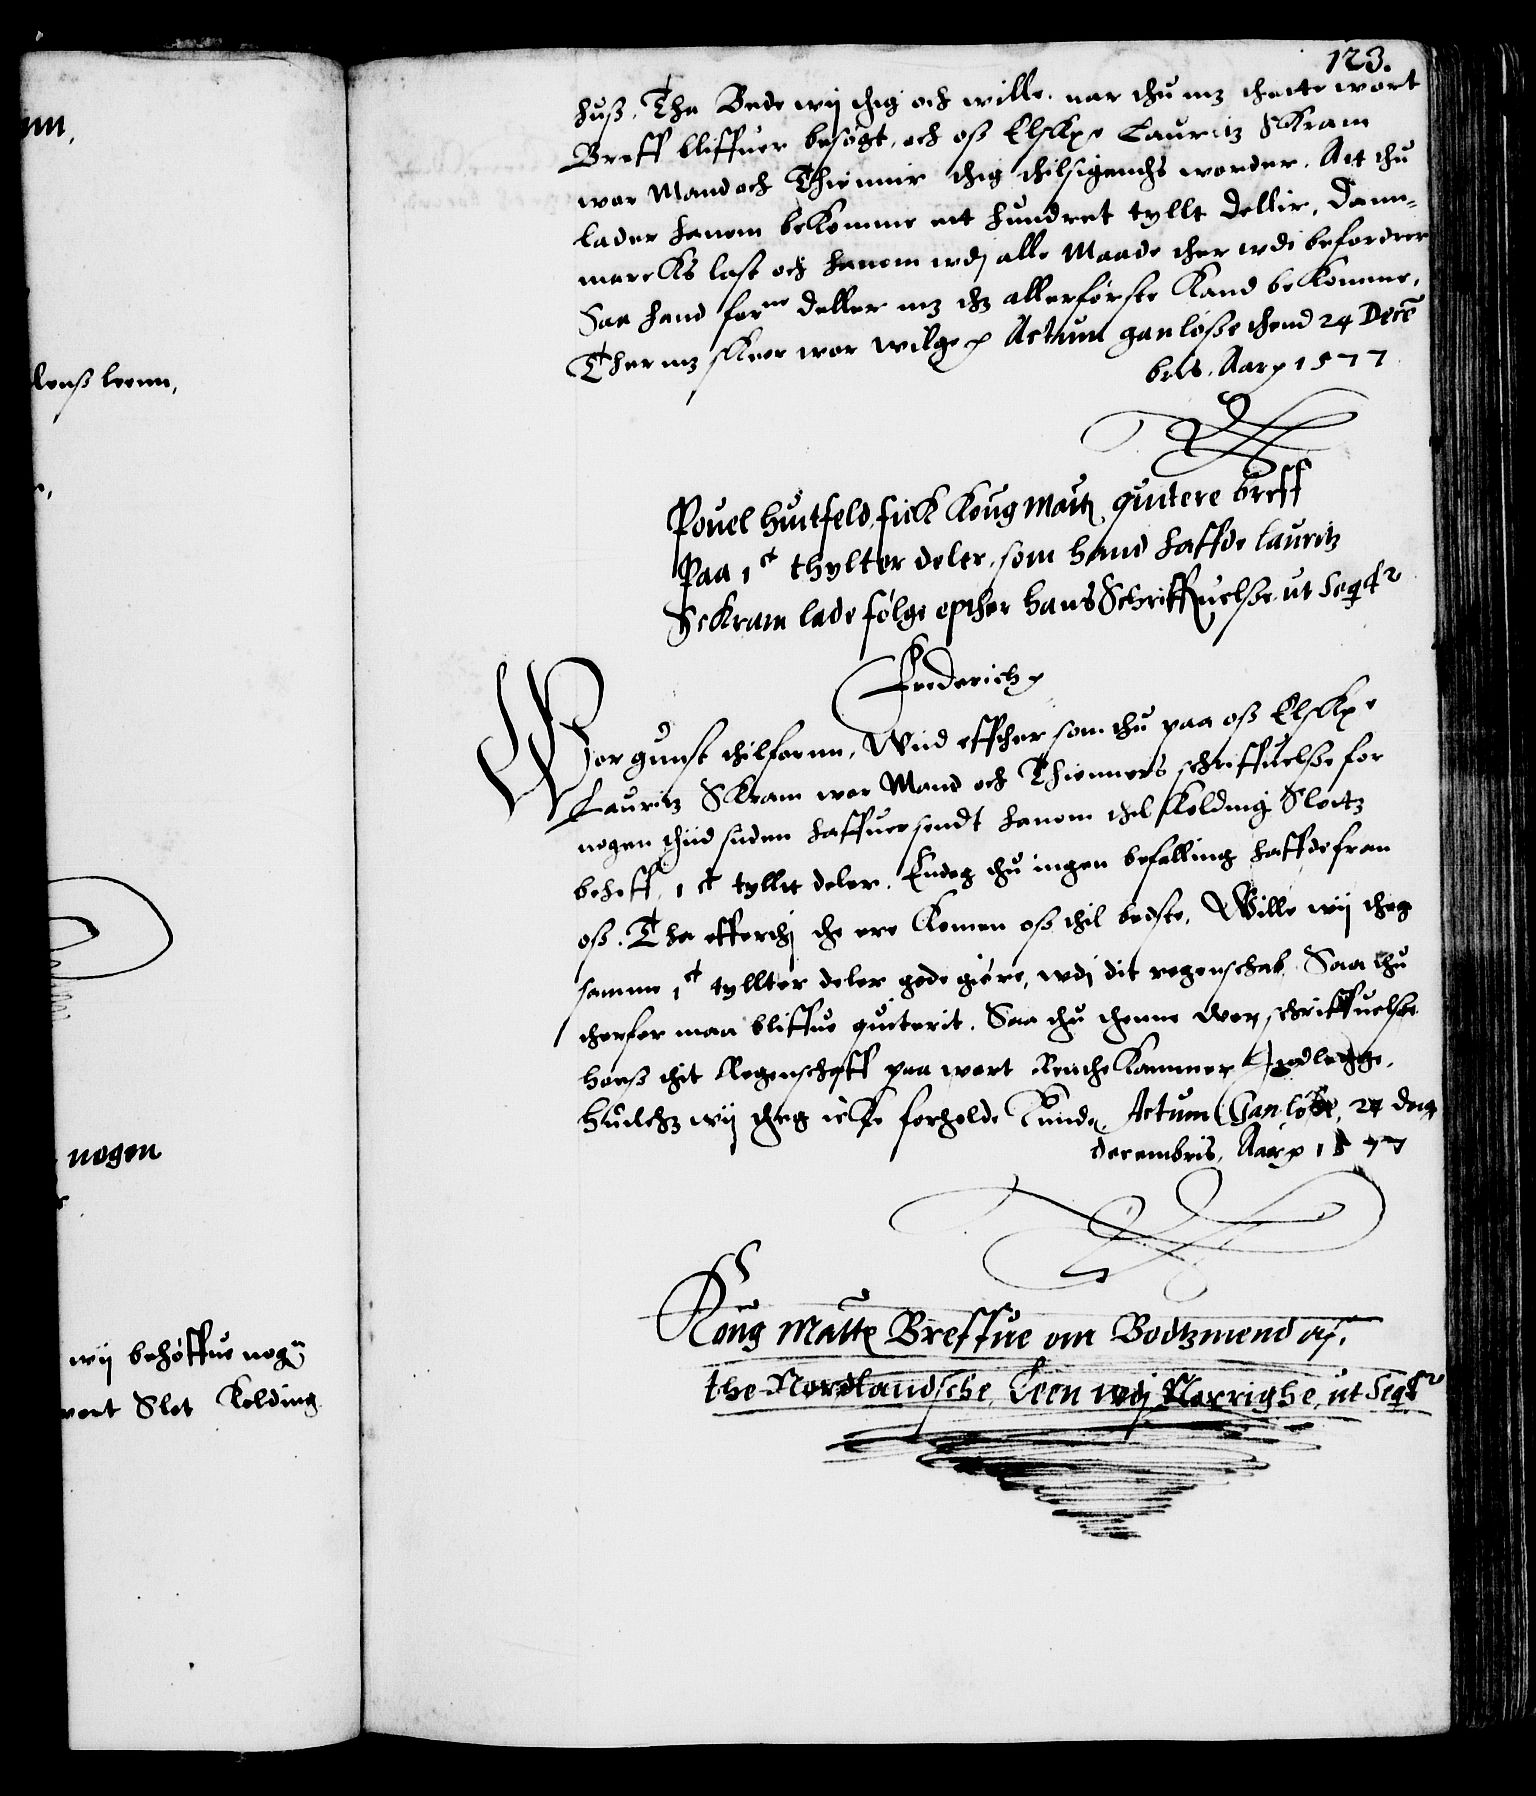 123.
huß. Tha Bede wij thig och wille, nar thu mz thette wort
Breff bliffuer besøgt, och oß Elskxe Lauritz Skram
wor Mand och Thienner thig thilsigendis worder. Att thu
lader hanom bekomme ett hundret tyllt deller, Dann-
marcks last och hanom wdj alle Maade ther wdi befordrer
Saa hand forne deller mz thz allerførste Kand bekomme,
Ther mz skeer wor wilge p Actum ganløße thend 24 Decem
bris. Aar p 1577
Povel huitfeld fick Kong Matz quitere breff
Paa 1 ct thylter deler, som hand haffde Lauritz
Sckram lade følge epther hans Schriffuelße ut Seqtr
Frederich p
Wor gunst thilforn, Wiid effther som thu paa oß Elskxe
Lauritz Skram wor Mand och Thienners schriffuelße for
nogen thiid siden haffuer sendt hanom thil Kolding Slotz
behoff, 1 ct tyllt deler. Endog thu ingen befalling haffde fran
oß. Tha effterthj the ere Komen oß thil bedste, Wille wij theg
samme 1 ct tyllter deler gode giøre, wdj dit regenschab. Saa thu
therfor maa bliffue quiterit. Saa thu thenne wor schriffuelße
hoeß thit Regenschaff paa wort Renthe Kammer Indlegge.
Huilchz wij theg icke forholde Kunde. Actum Ganløße, 24 dag
decembris, Aar p 1577
Kong Matts Breffue om Bodtzmend af
the Nordlandsche Leen wdj Norrighe, ut Seqtr
lenß leenn,
nogen
wij behøffue nogn
wort Slot Kolding